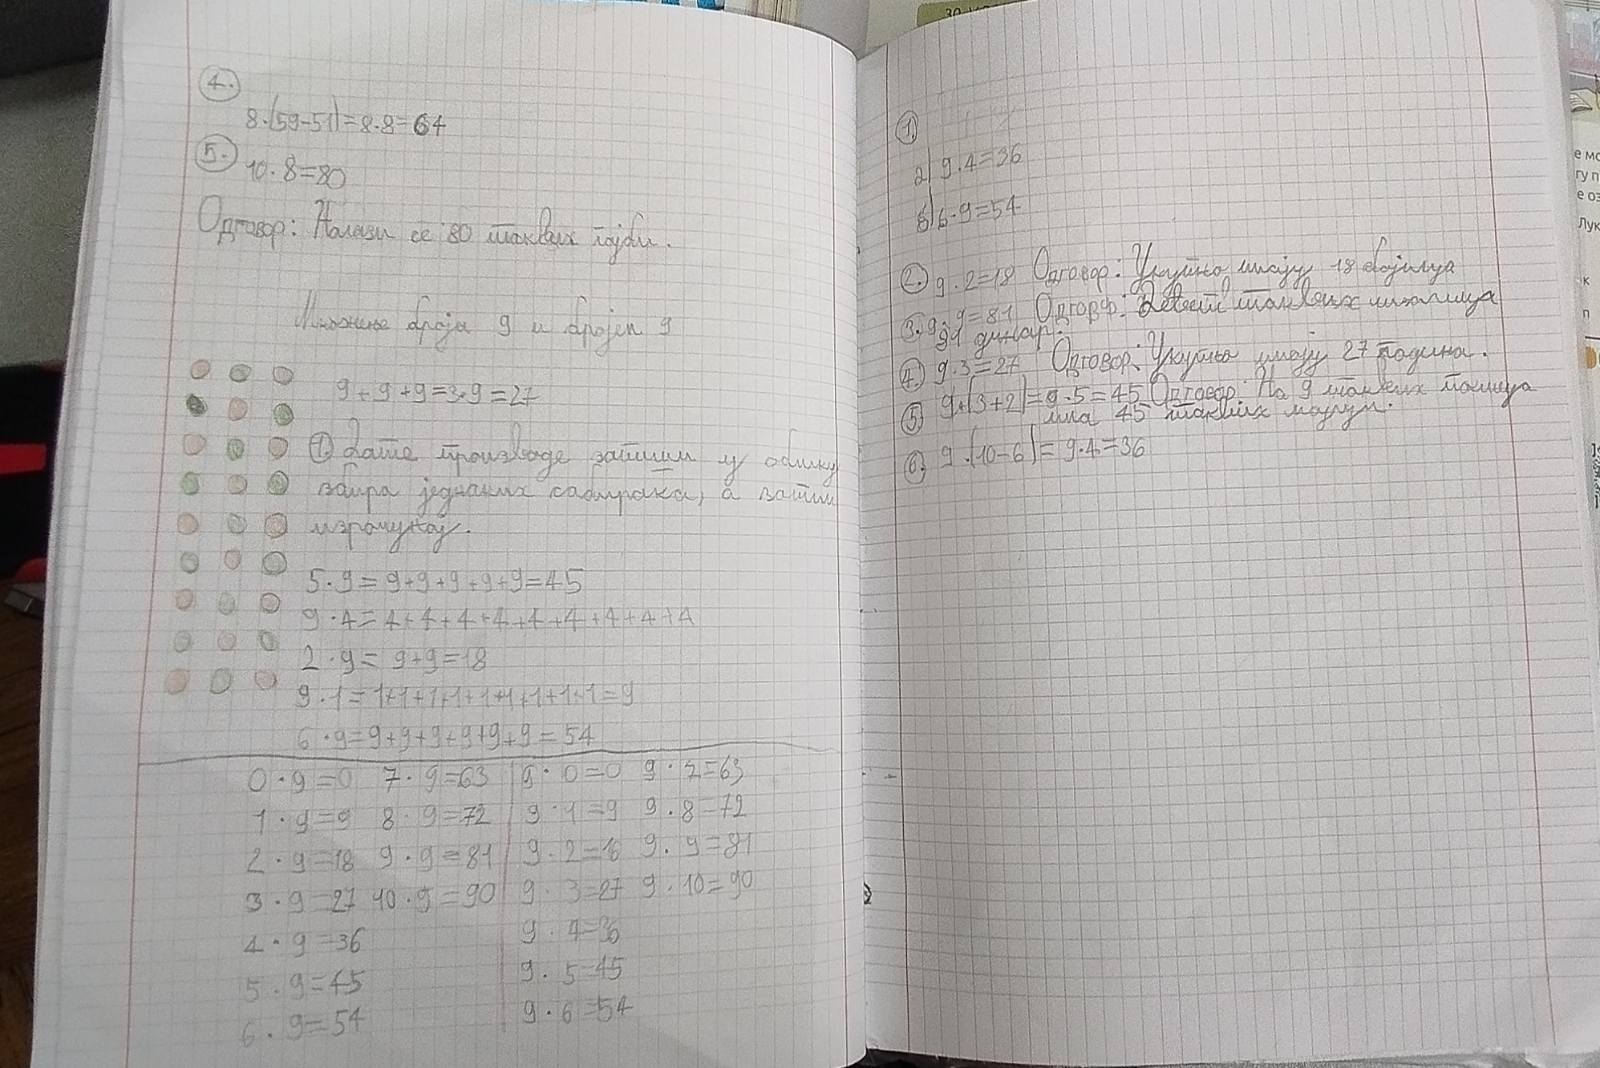 4.
8·(59-51)=8·8=64
5. 10·8=80
Одговор: Налази се 80 таквих
Множење броја 9 и бројем 9
9+9+9=3·9=27
1. Дате производе запиши у облику
збира једнаких сабирака, а затим
израчунај.
5·9=9+9+9+9+9=45
9·4=4+4+4+4+4+4+4+4+4
2·9=9+9=18
9·1=1+1+1+1+1+1+1+1+1=9
6·9=9+9+9+9+9+9=54
0·9=0 7·9=63 9·0=0 9·7=63
1·9=9 8·9=72 9·1=9 9·8=72
2·9=18 9·9=81 9·2=18 9·9=81
3·9=27 10·9=90 9·3=27 9·10=90
4·9=36 9·4=36
5·9=45 9·5=45
6·9=54 9·6=54
1.
а) 9·4=36
б) 6·9=54
2. 9·2=18 Одговор: Укупно имају 18 бојица
3. 9·9=81 Одговор: Девет таквих
81 динар.
4. 9·3=27 Одговор: Укупно имају 27 година.
5. 9·(3+2)=9·5=45 Одговор: На 9 таквих
има 45 таквих
6. 9·(10-6)=9·4=36